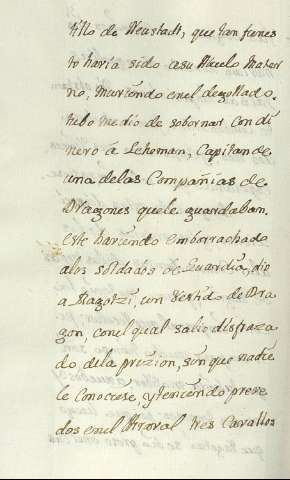 tillo de Neustadt, que tan funes
to havia sido a su Abuelo Mater
no, muriendo en el degollado.
tubo medio de sobornar con di
nero â Leheman, Capitan de
una de las Compañias de
Dragones que le guardaban.
este haviendo emborrachado
alos soldados de Guardia, dio
a Ragotzi, un Vestido de Dra
gon, con el qual salio disfraza
do, de la prizion, sin que nadie
le conociese, y teniendo preve
dos en el Arroval tres Cavallos